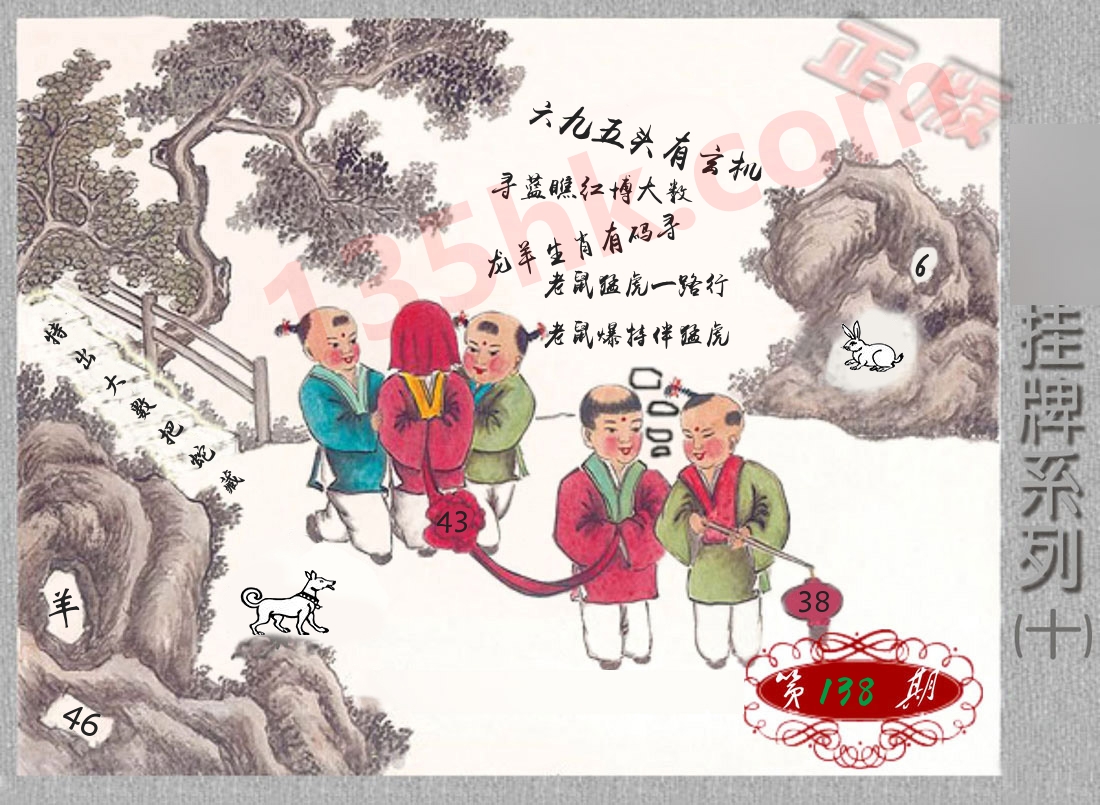 正版
六九五头有玄机
寻蓝瞧红博大数
龙羊生肖有码寻
老鼠猛虎一路行
老鼠爆特伴猛虎
135hk.com
6
特出大數把蛇藏
挂牌系列(十)
43
38
羊
46
第138期